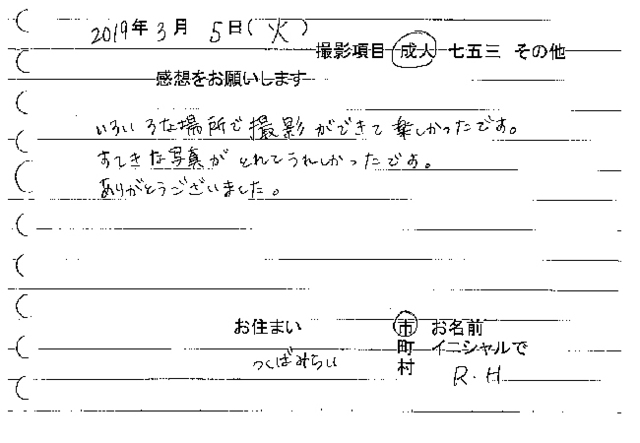 2019年3月5日(火)
撮影項目 成人 七五三 その他
感想をお願いします
いろいろな場所で撮影ができて楽しかったです。
すてきな写真がとれてうれしかったです。
ありがとうございました。
お住まい 市 お名前
町 イニシャルで
つくばみらい 村 R.H